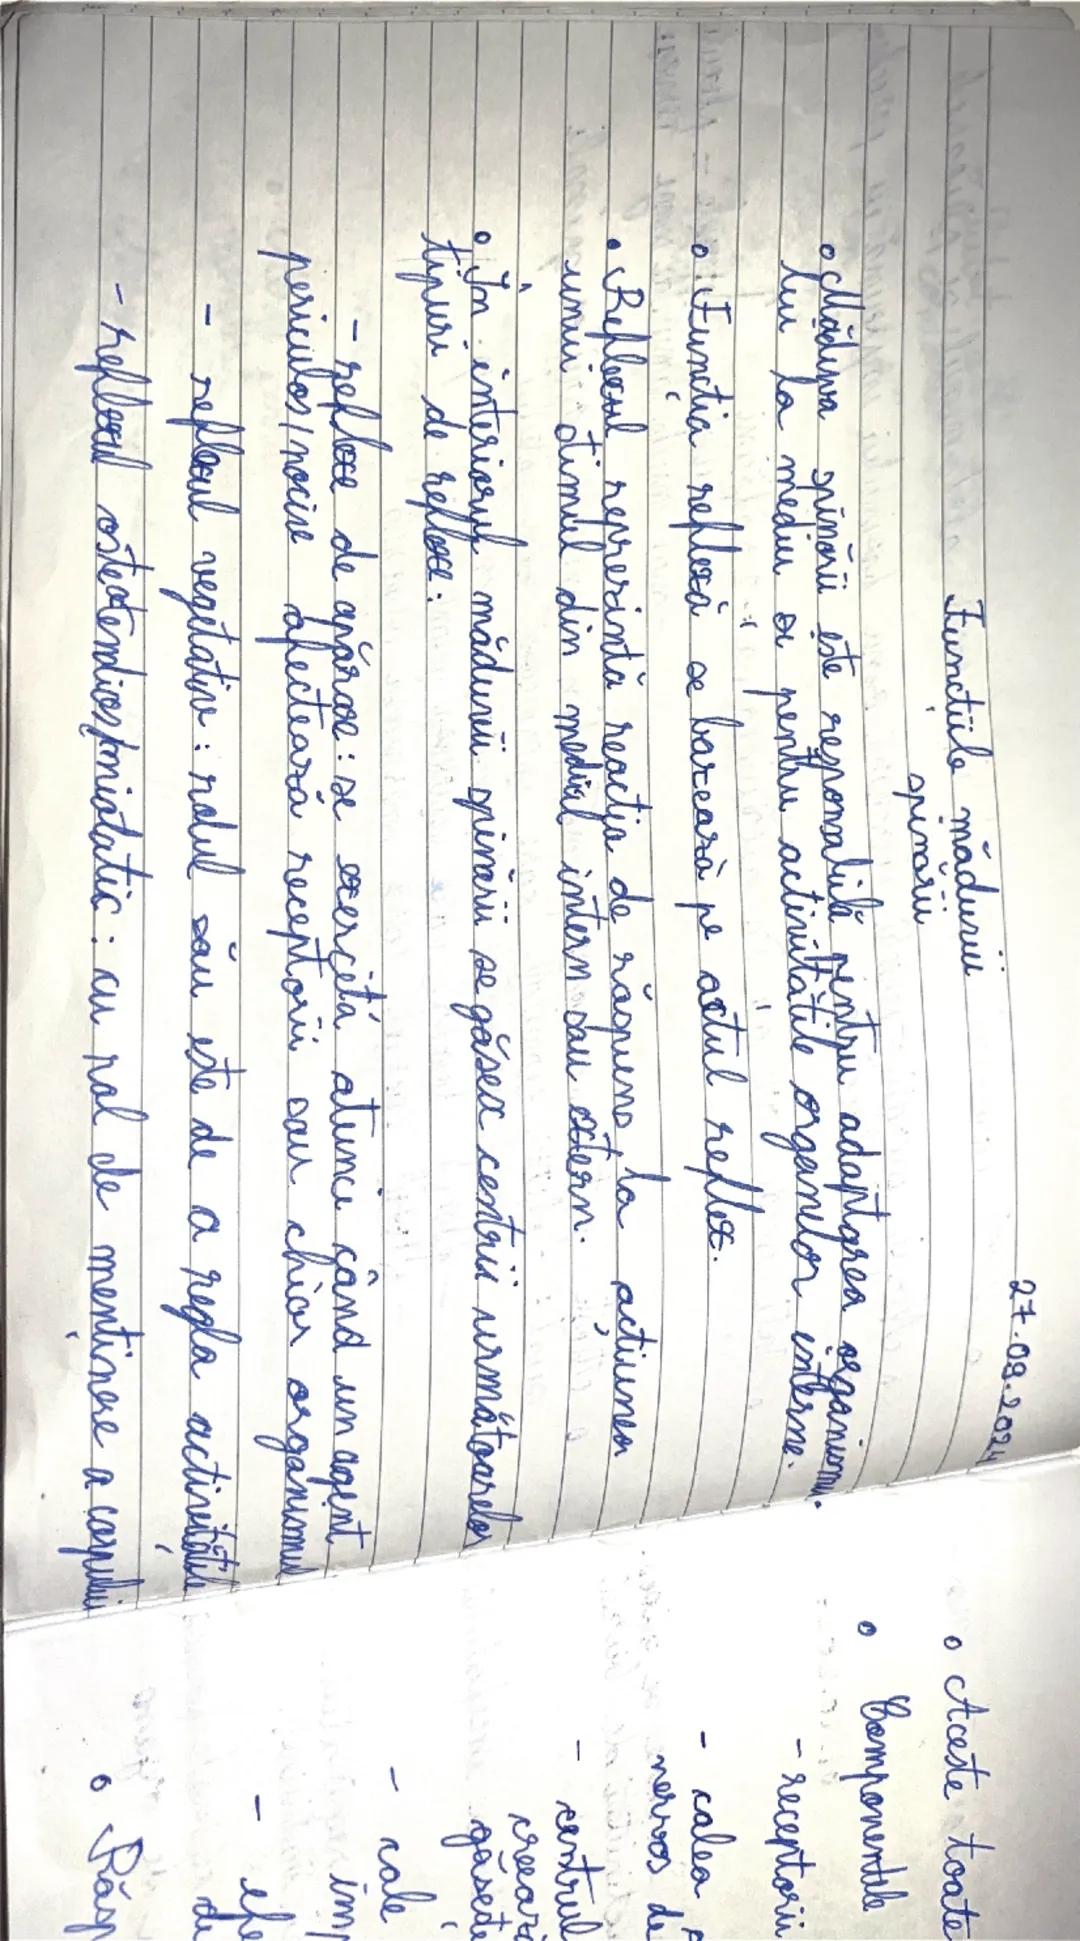 27.09.2024
Funcțiile măduvii
spinării
Măduva spinării este responsabilă pentru adaptarea organismu-
lui la mediu și pentru activitățile organelor interne.
Funcția reflexă se bazează pe actul reflex.
Reflexul reprezintă reacția de răspuns la acțiunea
unui stimul din mediul intern sau extern.
În interiorul măduvii spinării se găsesc centrii următoarelor
tipuri de reflexe:
- reflexe de apărare: se exercită atunci când un agent
periculos/nociv afectează receptorii sau chiar organismul
- reflexul vegetativ: rolul său este de a regla activitățile
- reflexul osteotendios/miotatic: cu rol de menținere a corpului
Aceste toate
Componentele
- receptorii
- calea
nervos de
- centrul
găsește
- cale
- efe
Răsp